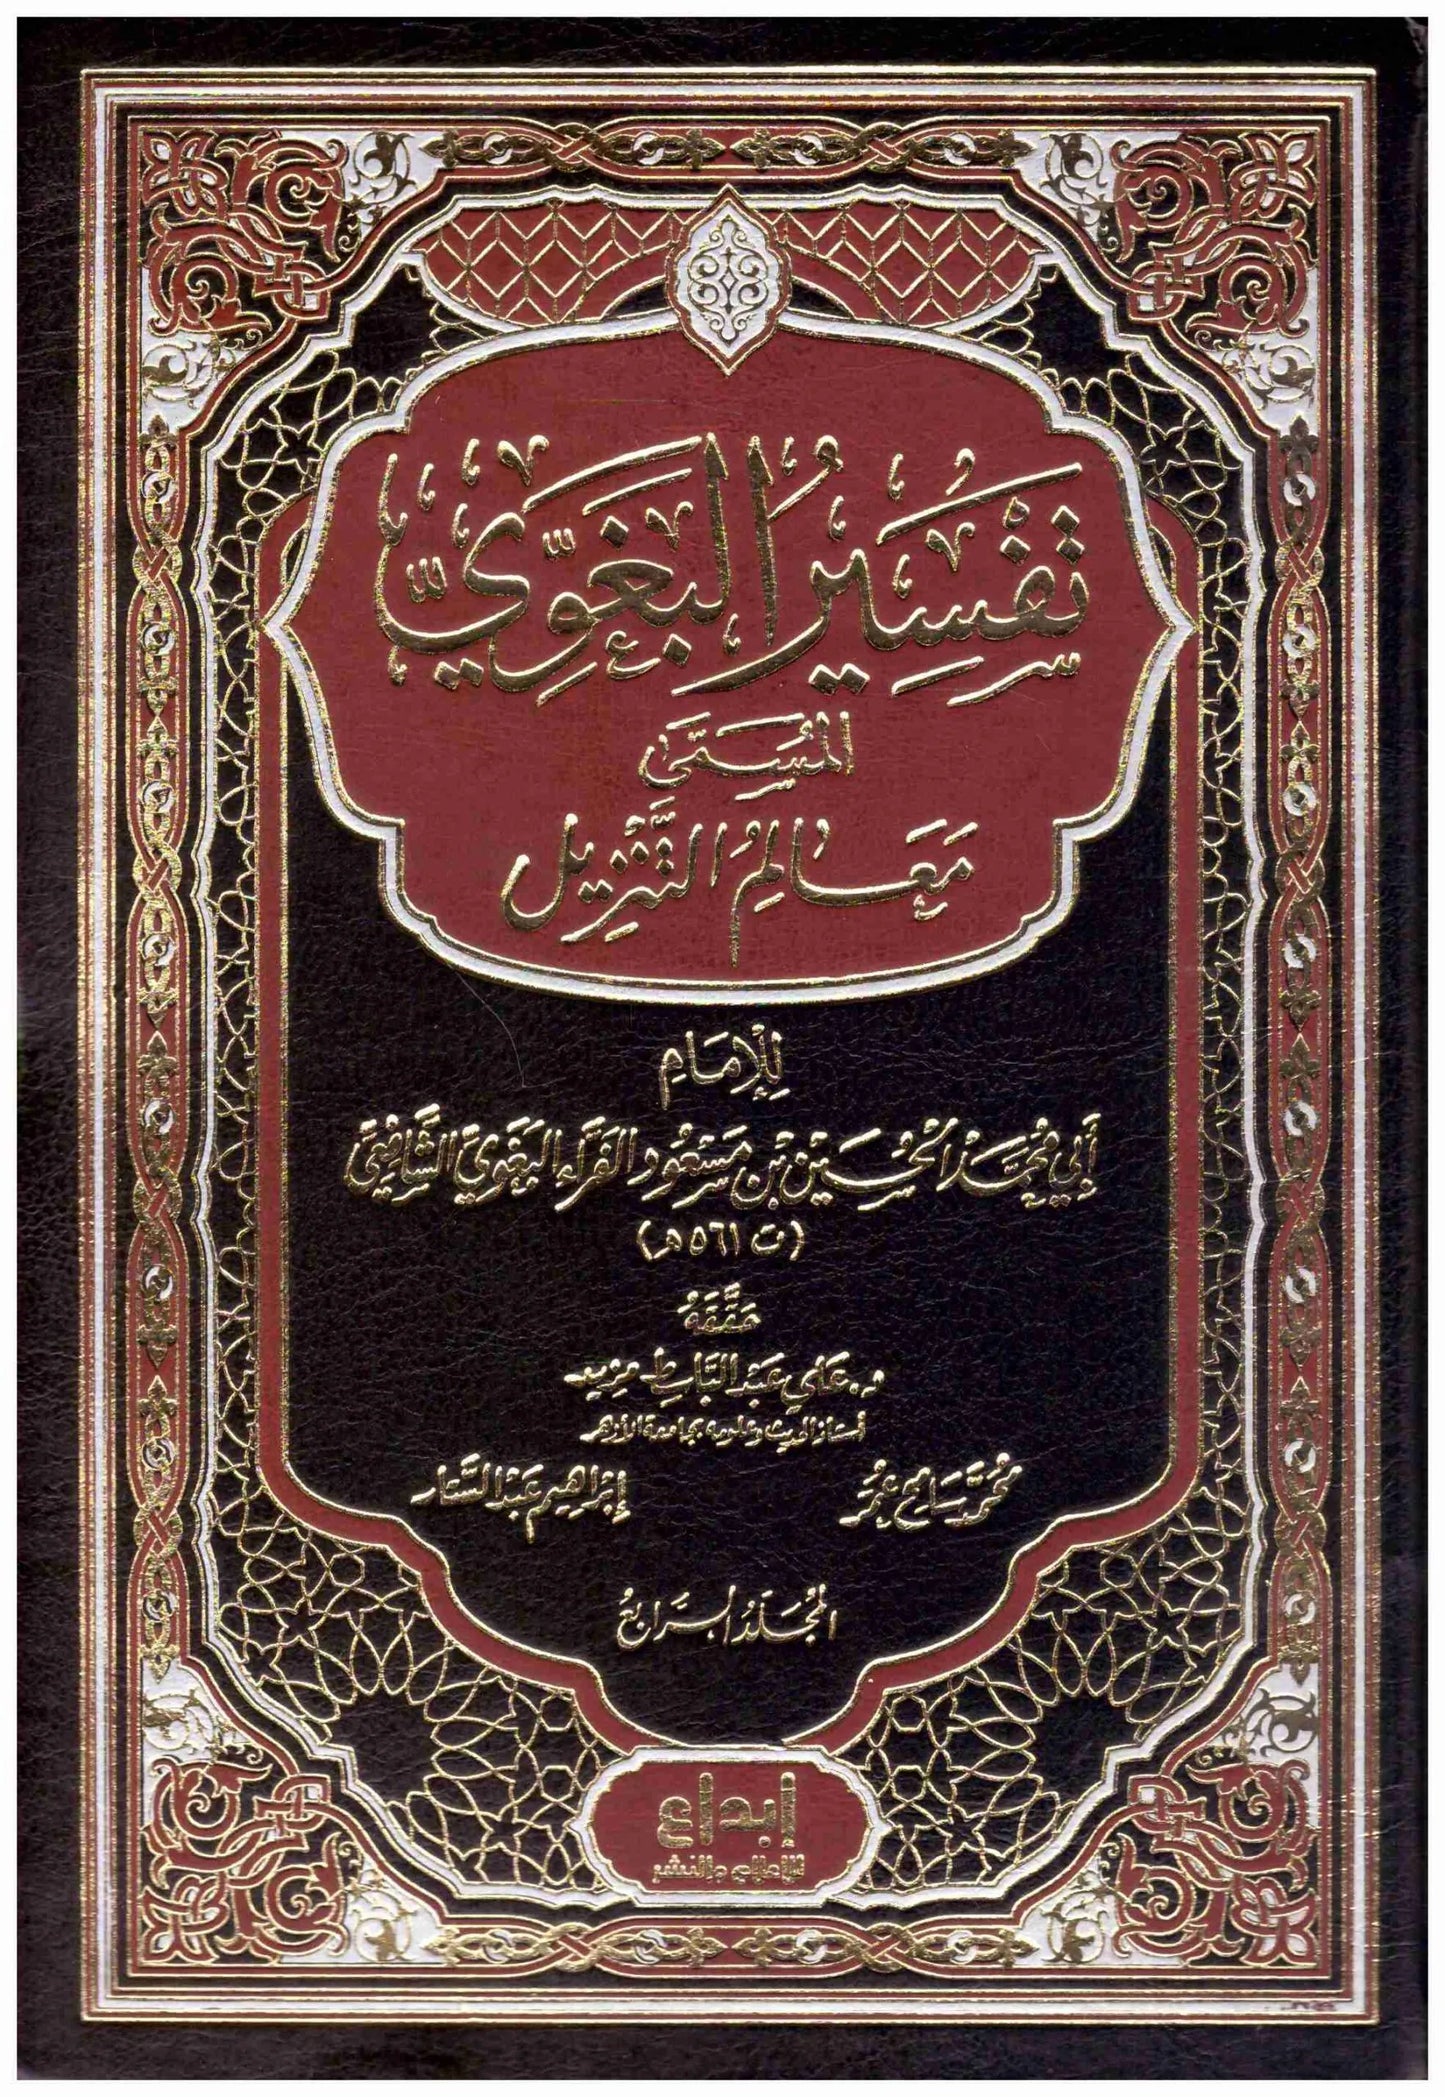 تَفْسِيرُ البَغَوِيِّ
المُسَمَّىٰ
مَعَالِمُ التَّنْزِيل
لِلْإِمَامِ
أَبِي مُحَمَّد الحُسَيْن بْن مَسْعُود الفَرَّاء البَغَوِيّ الشَّافِعِيّ
(ت ٥٦١هـ)
حَقَّقَهُ
د. عَلي عَبْد البَاسِط مزيد
أستاذ الحديث وعلومه بجامعة الأزهر
مُحَمَّد سَامِح عُمَر
إِبْرَاهِيم عَبْد السَّتَّار
المُجَلَّدُ الرَّابِعُ
إبداع
للإعلام والنشر